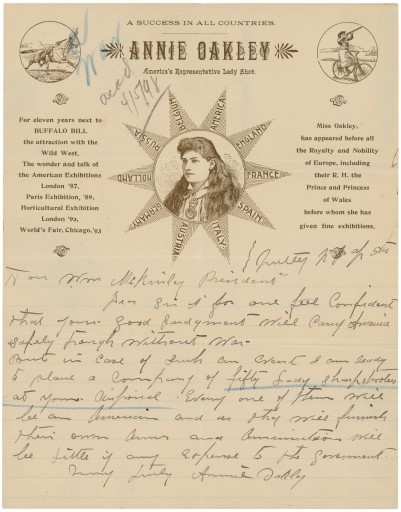 A SUCCESS IN ALL COUNTRIES.
ANNIE OAKLEY
America's Representative Lady Shot.
War
ackd
4/5/98
For eleven years next to
BUFFALO BILL
the attraction with the
Wild West.
The wonder and talk of
the American Exhibitions
London '87,
Paris Exhibition, '89,
Horticultural Exhibition
London '92,
World's Fair, Chicago, '93
AMERICA
ENGLAND
FRANCE
SPAIN
ITALY
AUSTRIA
GERMANY
HOLLAND
RUSSIA
BELGIUM
Miss Oakley,
has appeared before all
the Royalty and Nobility
of Europe, including
their R. H. the
Prince and Princess
of Wales
before whom she has
given fine exhibitions,
Nutley N.J. Ap 5th
Hon Wm McKinley President
Dear Sir I for one feel Confident
that your good judgment will carry America
safely through without War
But in case of such an event I am ready
to place a Company of fifty lady sharpshooters
at your disposal. Every one of them will
be an American and as they will furnish
their own Arms and Ammunition will
be little if any expense to the government
Very truly Annie Oakley